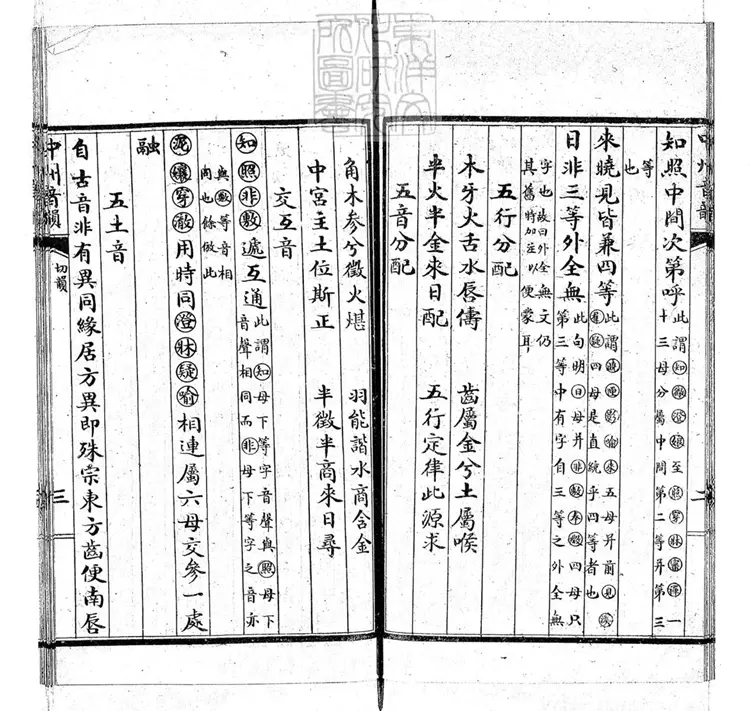 中州音韻
二
知照中間次第呼此謂知徹澄孃至照穿牀審禪一十三母分屬中間第二等并第三
等也
來曉見皆兼四等此謂曉匣影喻來五母并前見溪羣疑四母是直統乎四等者也
日非三等外全無此句明日母并非敷奉微四母只第三等中有字自三等之外全無
字也故曰外全無文仍其舊特加註以便蒙耳
五行分配
木牙火舌水唇儔 齒屬金兮土屬喉
半火半金來日配 五行定律此源求
五音分配
角木參兮徵火堪 羽能諧水商含金
中宮主土位斯正 半徵半商來日尋
交互音
知照非敷遞互通此謂知母下等字音聲與照母下等字音聲相同而非母下等字之音亦
與敷等音相同也餘倣此
泥孃穿徹用時同澄牀疑喻相連屬六母交參一處
融
五土音
自古音非有異同緣居方異即殊宗東方齒便南唇
中州音韻
切韻
三